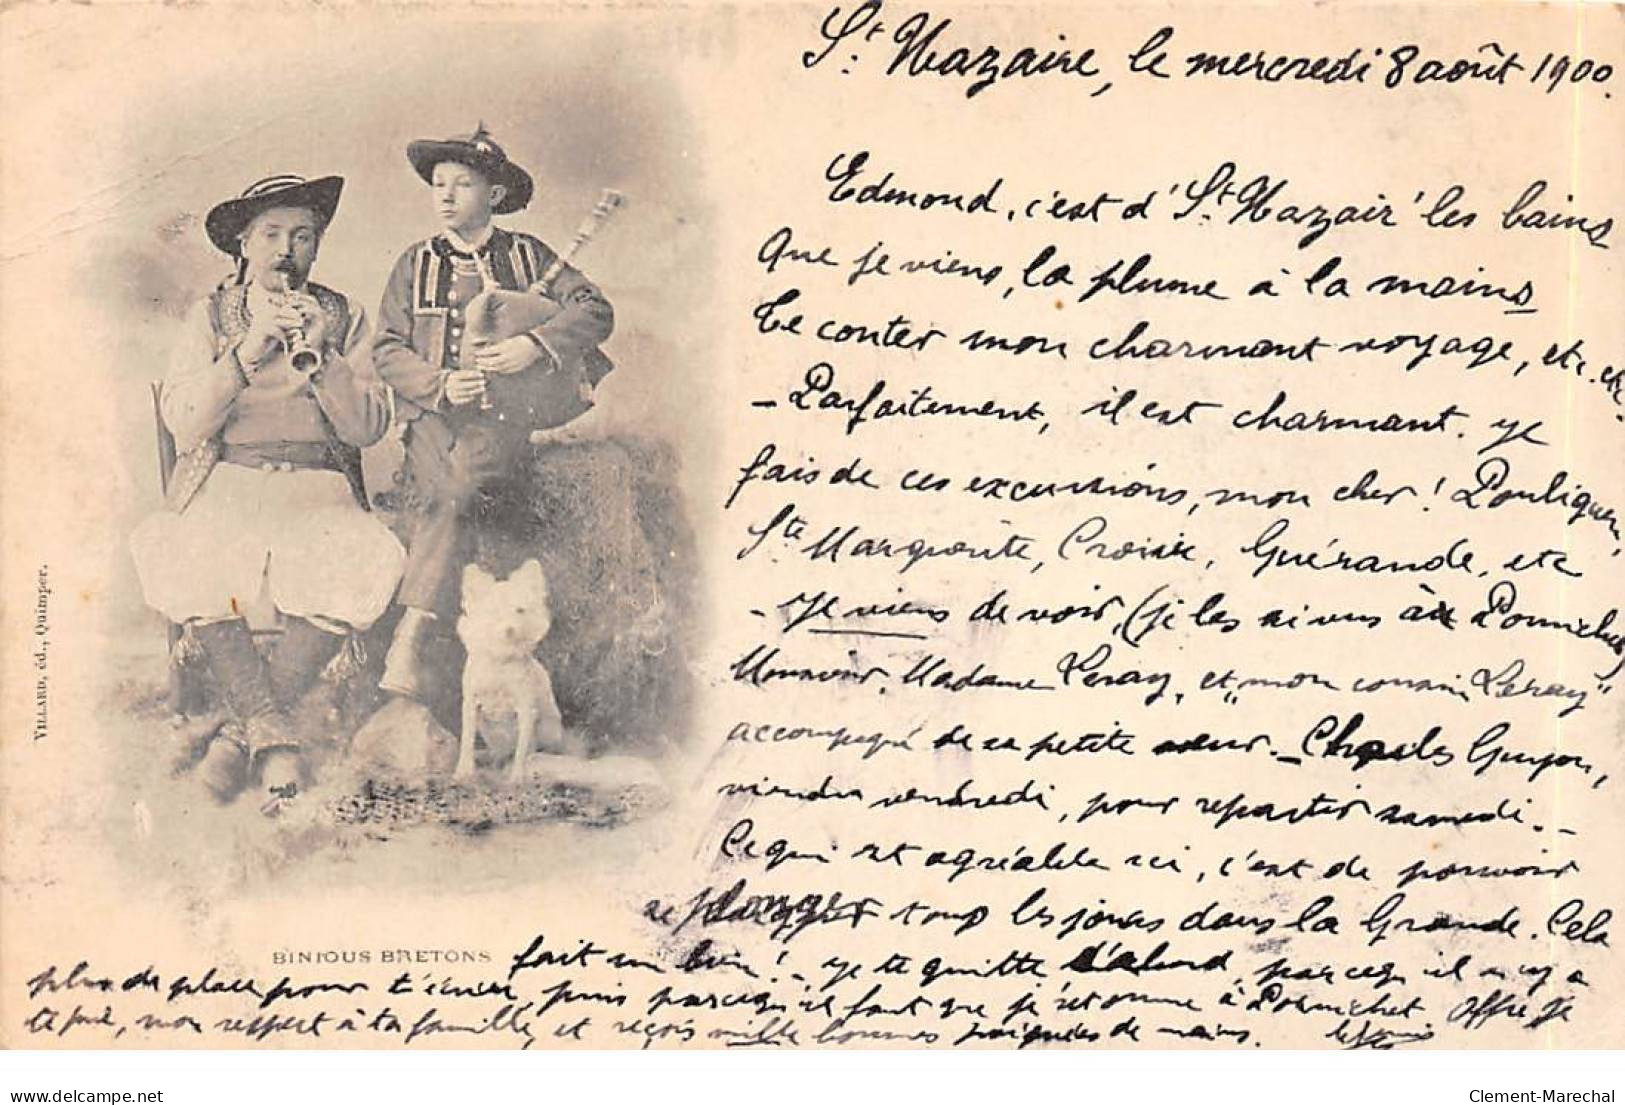 St. Nazaire, le mercredi 8 août 1900.
Edmond, c'est d'St. Nazair' les bains
Que je viens, la plume à la mains
Te conter mon charmant voyage, etc. etc.
- Parfaitement, il est charmant. Je
fais de ces excursions, mon cher ! Pouliguen,
Ste Marguerite, Croisic, Guérande, etc
- Je viens de voir, (je les ai vus à Pornichet)
Monsieur, Madame Leray, et "mon cousin Leray"
accompagné de sa petite sœur. - Charles Guyon,
viendra vendredi, pour repartir samedi. -
Ce qui est agréable ici, c'est de pouvoir
se plonger tous les jours dans la Grande. Cela
fait un bien ! - Je te quitte d'abord, parce qu'il n'y a
plus de place pour t'écrire, puis parce qu'il faut que je retourne à Pornichet. Offre je
te prie, mon respect à ta famille, et reçois mille bonnes poignées de mains.
BINIOUS BRETONS
VILLARD, éd., Quimper.
delcampe.net
Clement-Marechal